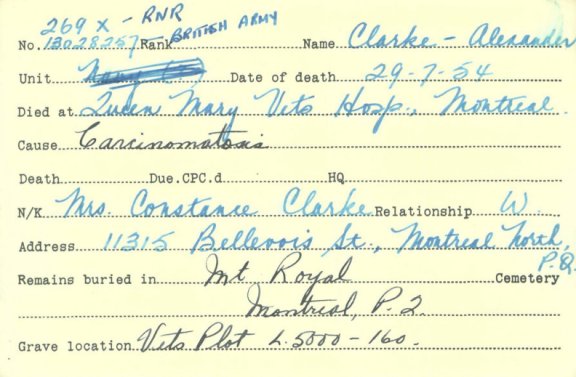 269 X - RNR
No. 13028257 Rank BRITISH ARMY Name Clarke - Alexander
Unit Date of death 29-7-54
Died at Queen Mary Vets Hosp., Montreal.
Cause Carcinomatosis
Death Due.CPC.d HQ
N/K Mrs. Constance Clarke Relationship W.
Address 11315 Bellevois St., Montreal North, P.Q.
Remains buried in Mt Royal Cemetery
Montreal, P.Q.
Grave location Vets Plot L.5000-160.